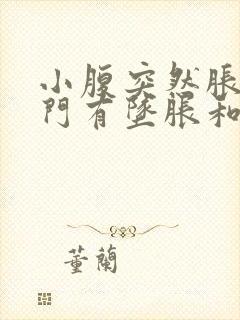 小腹突然脹
門有墜脹和
董蘭